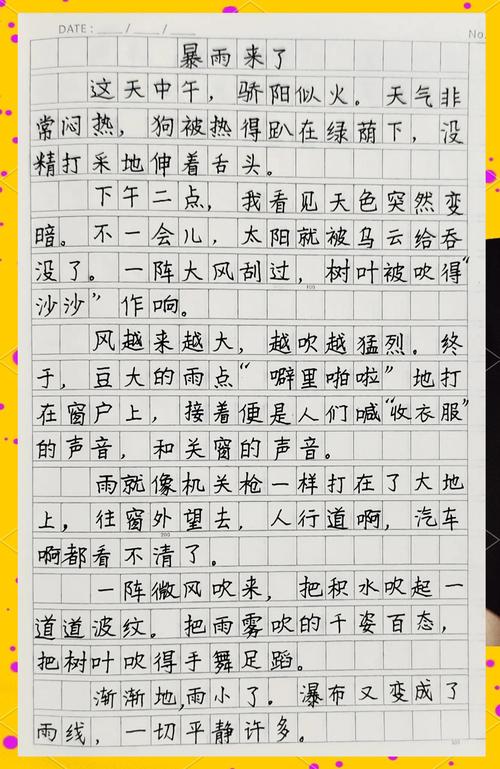 DATE: / /
No.
暴雨来了
这天中午，骄阳似火。天气非
常闷热，狗被热得趴在绿荫下，没
精打采地伸着舌头。
下午二点，我看见天色突然变
暗。不一会儿，太阳就被乌云给吞
没了。一阵大风刮过，树叶被吹得“
沙沙”作响。
100
风越来越大，越吹越猛烈。终
于，豆大的雨点“噼里啪啦”地打
在窗户上，接着便是人们喊“收衣服”
的声音，和关窗的声音。
雨就像机关枪一样打在了大地
上，往窗外望去，人行道啊，汽车
200
啊都看不清了。
一阵微风吹来，把积水吹起一
道道波纹。把雨雾吹的千姿百态，
把树叶吹得手舞足蹈。
渐渐地，雨小了。瀑布又变成了
雨线，一切平静许多。
300